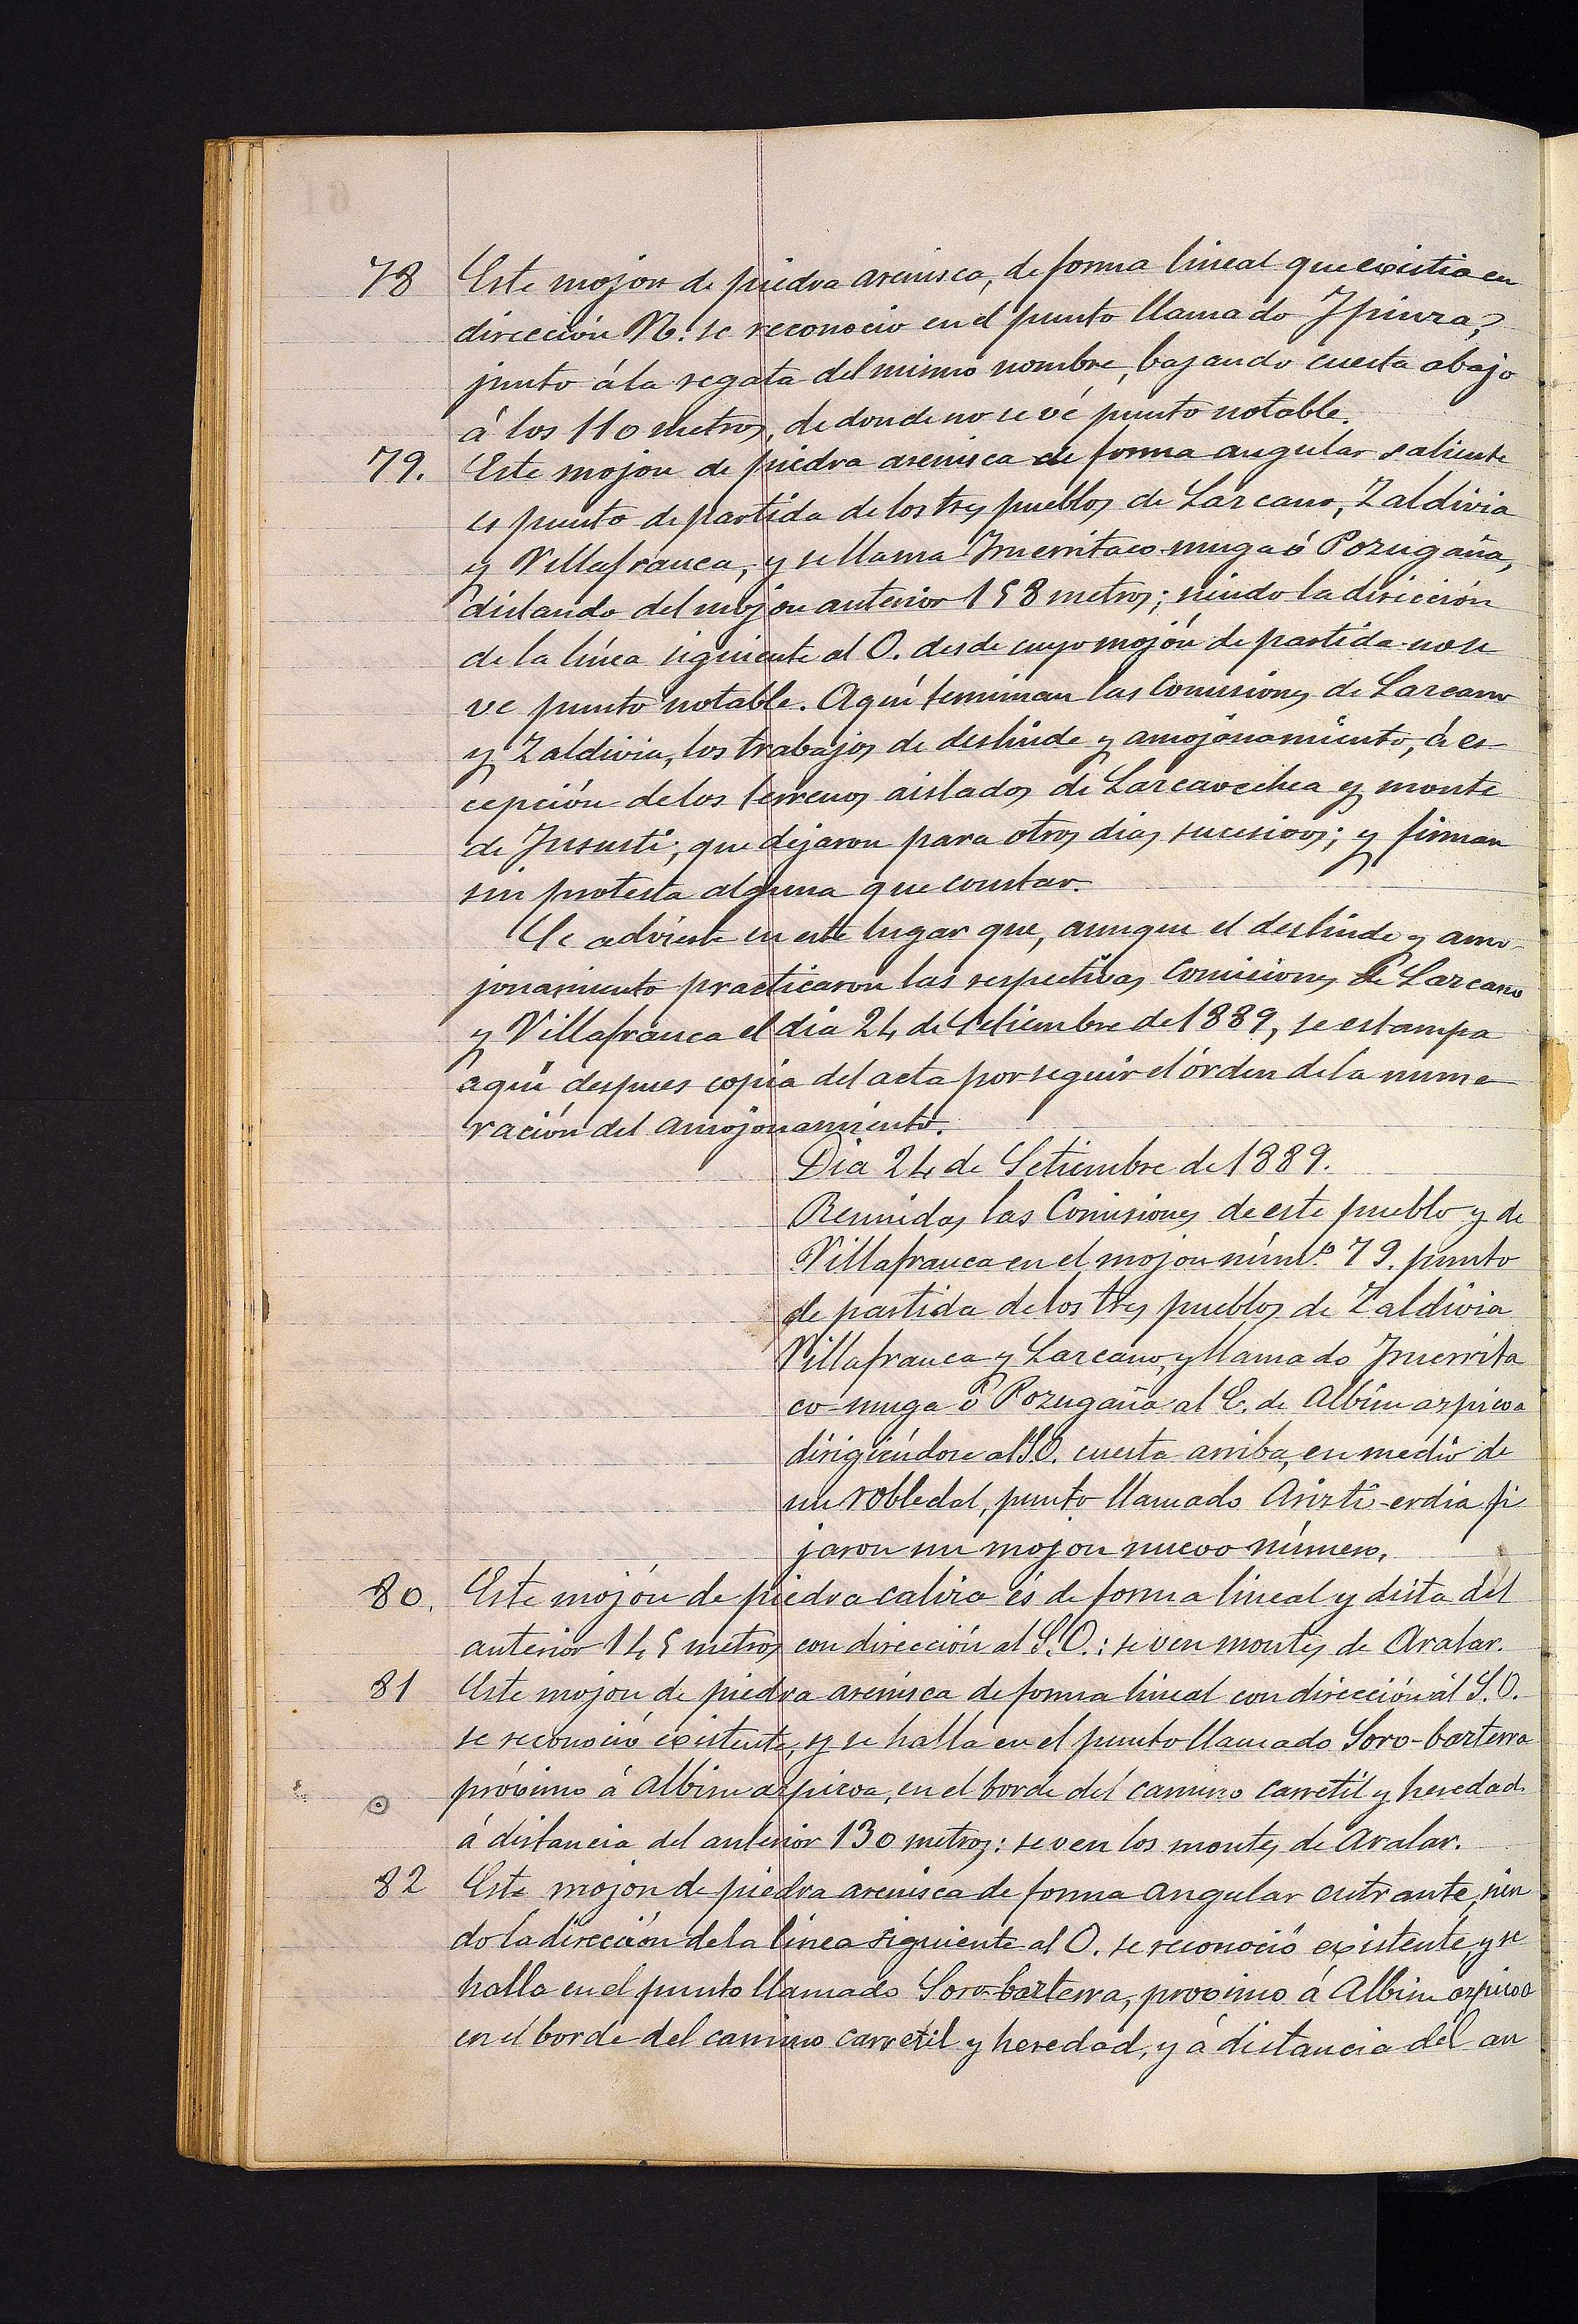 78 Este mojon de piedra arenisca, de forma lineal que existia en
dirección N. se reconocio en el punto llamado Ypinza,
junto á la regata del mismo nombre, bajando cuesta abajo
á los 110 metros, de donde no se vé punto notable.
79. Este mojon de piedra arenisca de forma angular saliente
es punto de partida de los tres pueblos de Lazcano, Zaldivia
y Villafranca, y se llama Ynerritaco-muga ó Pozugaña,
distando del mojon anterior 158 metros; siendo la dirección
de la línea siguiente al O. desde cuyo mojón de partida no se
ve punto notable. Aquí terminan las Comisiones de Lazcano
y Zaldivia, los trabajos de deslinde y amojonamiento, á es-
cepción de los terrenos aislados de Lazcaoechea y monte
de Jususti; que dejaron para otros dias sucesivos; y firman
sin protesta alguna que constar.
Se advierte en este lugar que, aunque el deslinde y amo-
jonamiento practicaron las respectivas Comisiones de Lazcano
y Villafranca el dia 24 de Setiembre de 1889, se estampa
aquí despues copia del acta por seguir el órden de la nume-
ración del amojonamiento.
Dia 24 de Setiembre de 1889.
Reunidas las Comisiones de este pueblo y de
Villafranca en el mojon núm.º 79. punto
de partida de los tres pueblos de Zaldivia
Villafranca y Lazcano, y llamado Ynerrita
co-muga ó Pozugaña al E. de Albinazpicoa
dirigiéndose al S.O. cuesta arriba, en medio de
un robledal, punto llamado Arizti-erdia fi
jaron un mojon nuevo número.
80. Este mojón de piedra caliza és de forma lineal y dista del
anterior 145 metros con dirección al S.O.: se ven montes de Aralar.
81 Este mojon de piedra arenisca de forma lineal con dirección al S.O.
se reconoció existente, y se halla en el punto llamado Soro-bazterra
próximo á Albinazpicoa, en el borde del camino carretil y heredad
á distancia del anterior 130 metros: se ven los montes de Aralar.
82 Este mojon de piedra arenisca de forma angular entrante, sien
do la dirección de la línea siguiente al O. se reconoció existente, y se
halla en el punto llamado Soro-bazterra, proximo á Albinazpicoa
en el borde del camino carretil y heredad, y á distancia del an